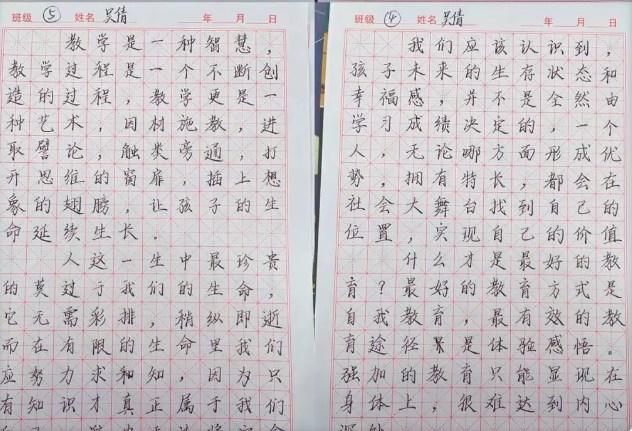 班级 ⑤ 姓名 吴倩 年 月 日
教学是一种智慧，
教学过程是一个不断创
造的过程，教学更是一
种艺术，因材施教，进
取譬论，触类旁通，打
开思维的窗扉，插上想
象的翅膀，让孩子的生
命延续生长。
人这一生中最珍贵
的莫过于我们的生命，
它无需彩排，稍纵即逝
而在有限的生命里我们
应努力求和知，因为只
有知识才真正属于我们
班级 ④ 姓名 吴倩 年 月 日
我们应该认识到，
孩子未来的生存状态和
幸福感，并不是全然由
学习成绩决定的，一个
人，无论哪方面形成优
势，拥有特长，都会在
社会大舞台找到自己的
位置，实现自己的价值
什么才是最好的教
育？最好的教育方式是
自我教育，最有效的教
育途径是体验感悟。
强加的教育只能显现在
身体上，很难达到内心